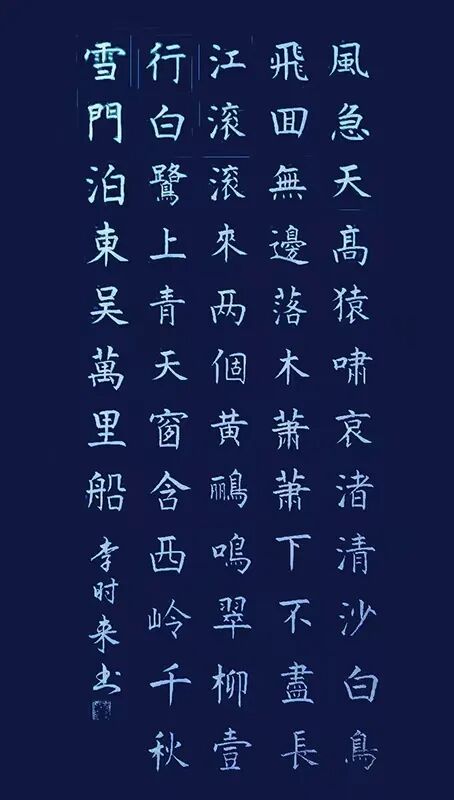 風急天高猿嘯哀渚清沙白鳥
飛囬無邊落木萧萧下不盡長
江滚滚來两個黄鸝鳴翠柳壹
行白鷺上青天窗含西岭千秋
雪門泊東吴萬里船
李时来书